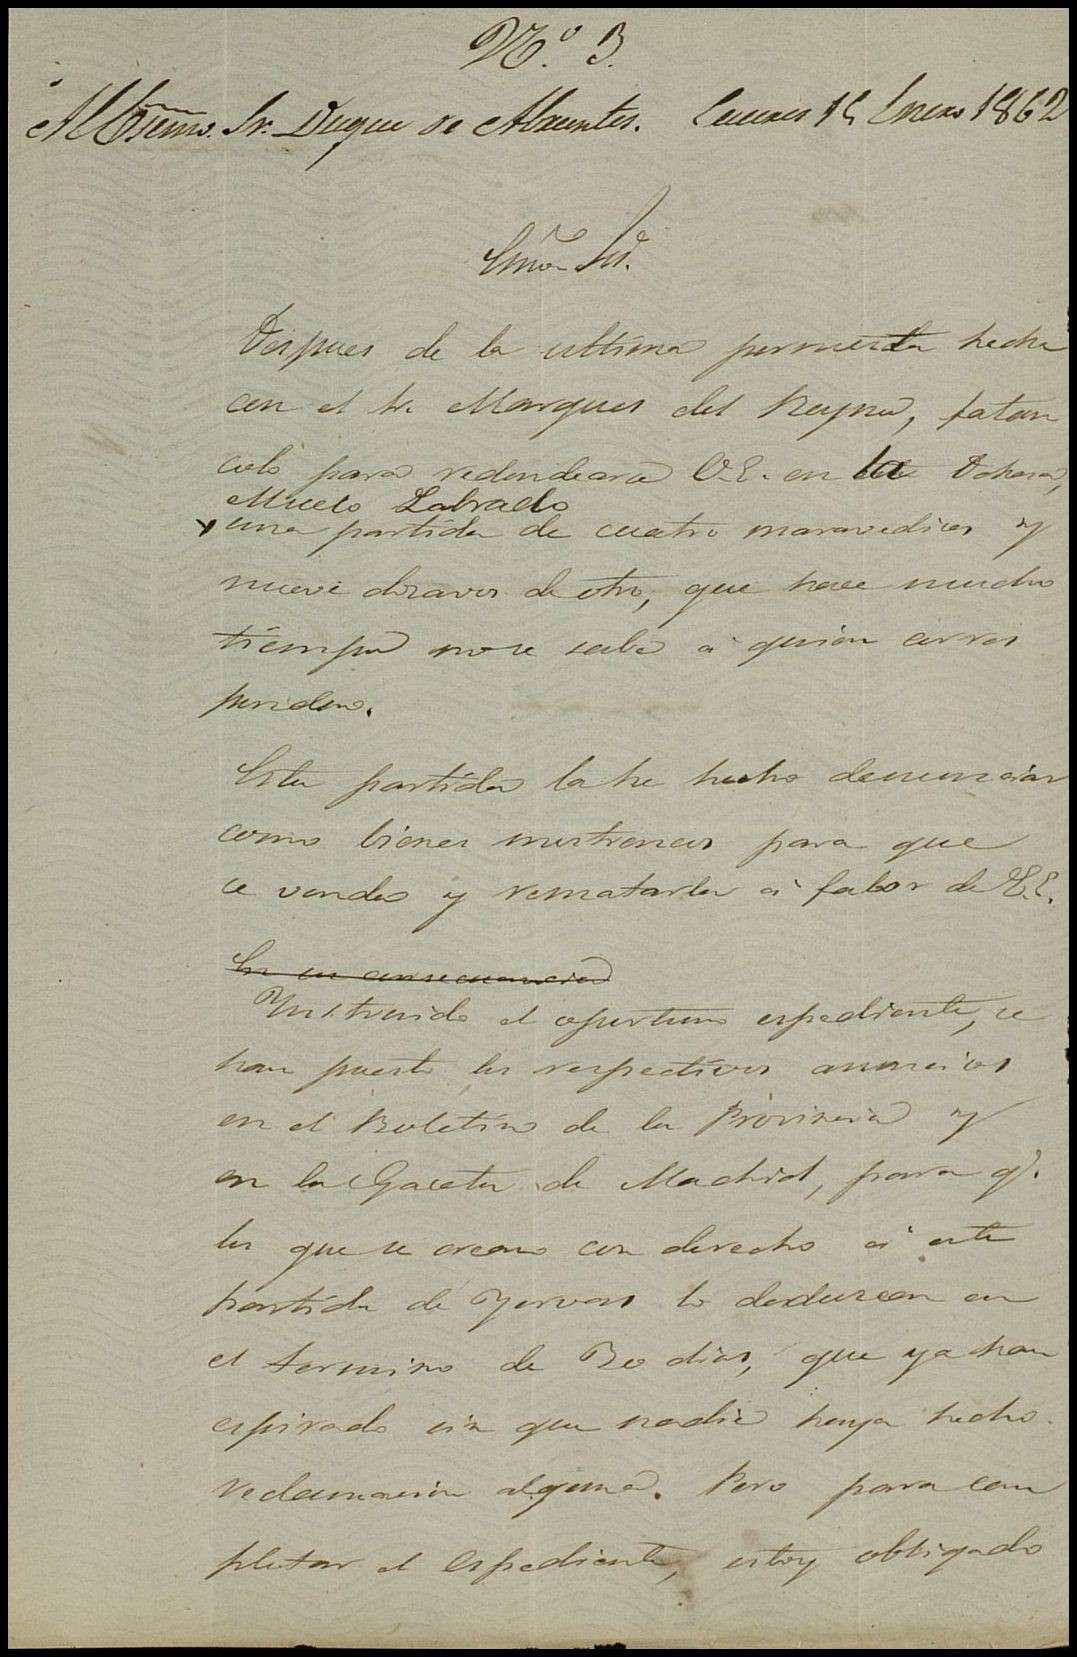 N.º 3.
Al Escmo. Sr. Duque de Abrantes. Caceres 15 Enero 1862
Escmo Sor.
Despues de la ultima permuta hecha
con el Sr. Marques del Reyno, fatan
solo para redondearse V.E. en la Dehesa,
Muelo Labrado
una partida de cuatro maravedises y
nueve dozavos de otro, que hace mucho
tiempo no se sabe á quien corres
ponden.
Esta partida la he hecho denunciar
como bienes mostrencos para que
se venda y rematarla á fabor de V.E.
En su consecuencia
Ynstruido el oportuno espediente, se
han puesto los respectivos anuncios
en el Boletin de la Provincia y
en la Gaceta de Madrid, para q.
los que se crean con derecho á esta
partida de Yervas lo deduzcan en
el termino de 30 dias, que ya han
espirado sin que nadie haya hecho
reclamacion alguna. Pero para com
pletar el Espediente, estoy obligado